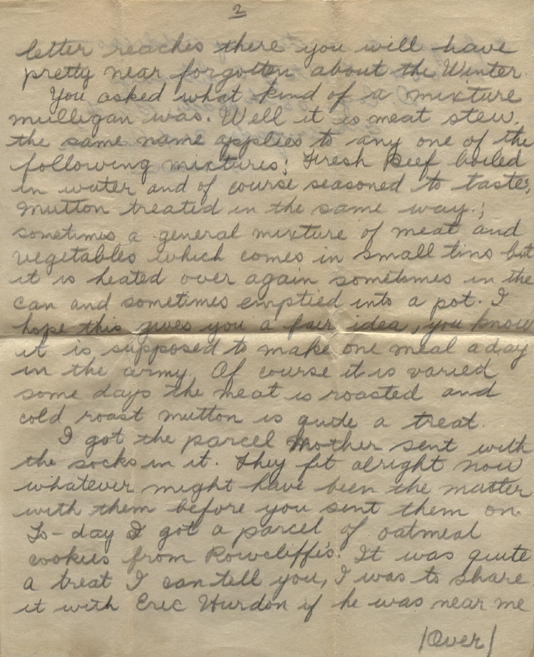 2
letter reaches there you will have
pretty near forgotten about the Winter.
You asked what kind of a mixture
mulligan was. Well it is meat stew.
the same name applies to any one of the
following mixtures; Fresh Beef boiled
in water and of course seasoned to taste;
mutton treated in the same way.;
sometimes a general mixture of meat and
vegetables which comes in small tins but
it is heated over again sometimes in the
can and sometimes emptied into a pot. I
hope this gives you a fair idea, you know
it is supposed to make one meal a day
in the army. Of course it is varied
some days the meat is roasted and
cold roast mutton is quite a treat.
I got the parcel Mother sent with
the socks in it. They fit alright now
whatever might have been the matter
with them before you sent them on.
To-day I got a parcel of oatmeal
cookies from Rowcliffe's. It was quite
a treat I can tell you, I was to share
it with Eric Hurdon if he was near me
/Over/